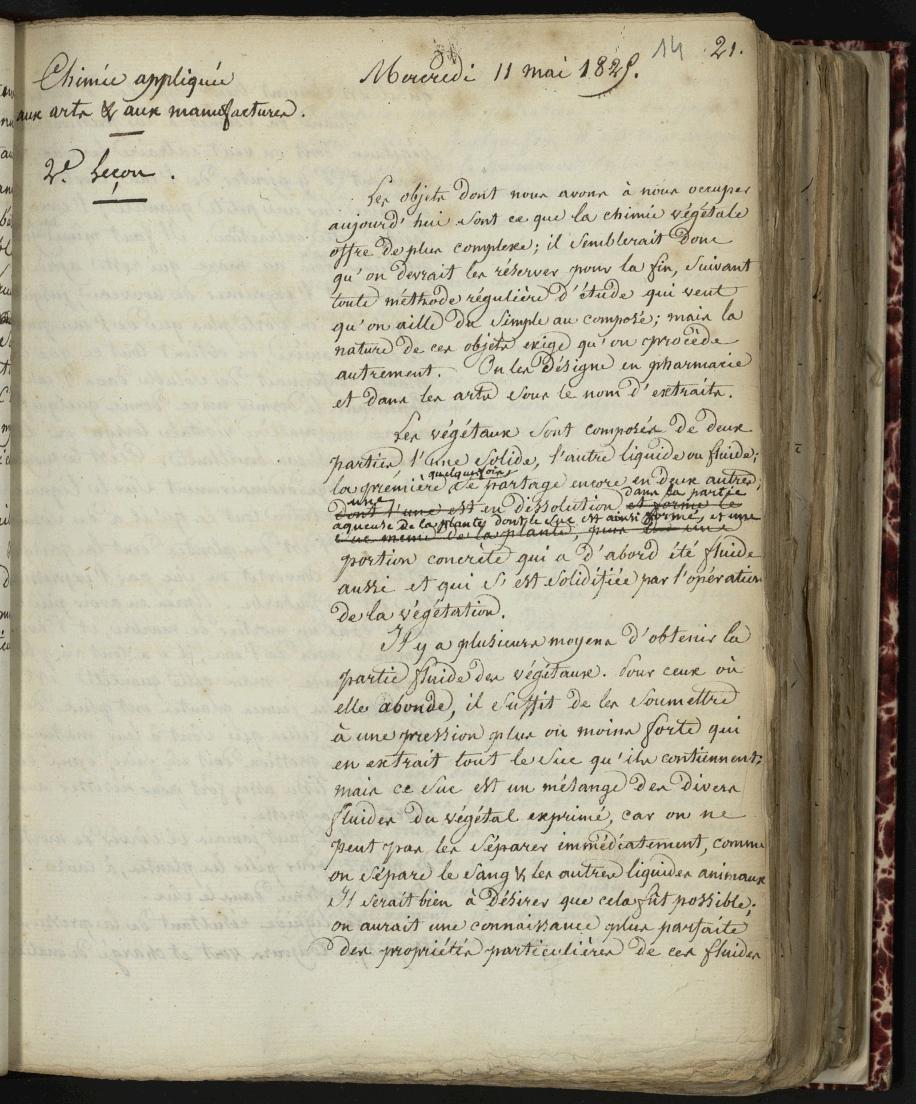 14 21.
Chimie appliquée
aux arts & aux manufactures.
Mercredi 11 mai 1825.
2e. Leçon.
Les objets dont nous avons à nous occuper
aujourd'hui sont ce que la chimie végétale
offre de plus complexe; il semblerait donc
qu'on devrait les réserver pour la fin, suivant
toute méthode régulière d'étude qui veut
qu'on aille du simple au composé; mais la
nature de ces objets exige qu'on procède
autrement. On les désigne en pharmacie
et dans les arts sous le nom d'extraits.
Les végétaux sont composés de deux
parties l'une solide, l'autre liquide ou fluide;
quelquefois
la première se partage encore en deux autres;
une dans la partie
dont l'une est en dissolution et forme le
aqueuse de la plante, dont le suc est ainsi formé, et une
suc même de la plante, une
portion concrète qui a d'abord été fluide
aussi et qui s'est solidifiée par l'opération
de la végétation.
Il y a plusieurs moyens d'obtenir la
partie fluide des végétaux. Pour ceux où
elle abonde, il suffit de les soumettre
à une pression plus ou moins forte qui
en extrait tout le suc qu'ils contiennent;
mais ce suc est un mélange des divers
fluides du végétal exprimé, car on ne
peut pas les séparer immédiatement, comme
on sépare le sang & les autres liquides animaux
Il serait bien à désirer que cela fût possible;
on aurait une connaissance plus parfaite
des propriétés particulières de ces fluides